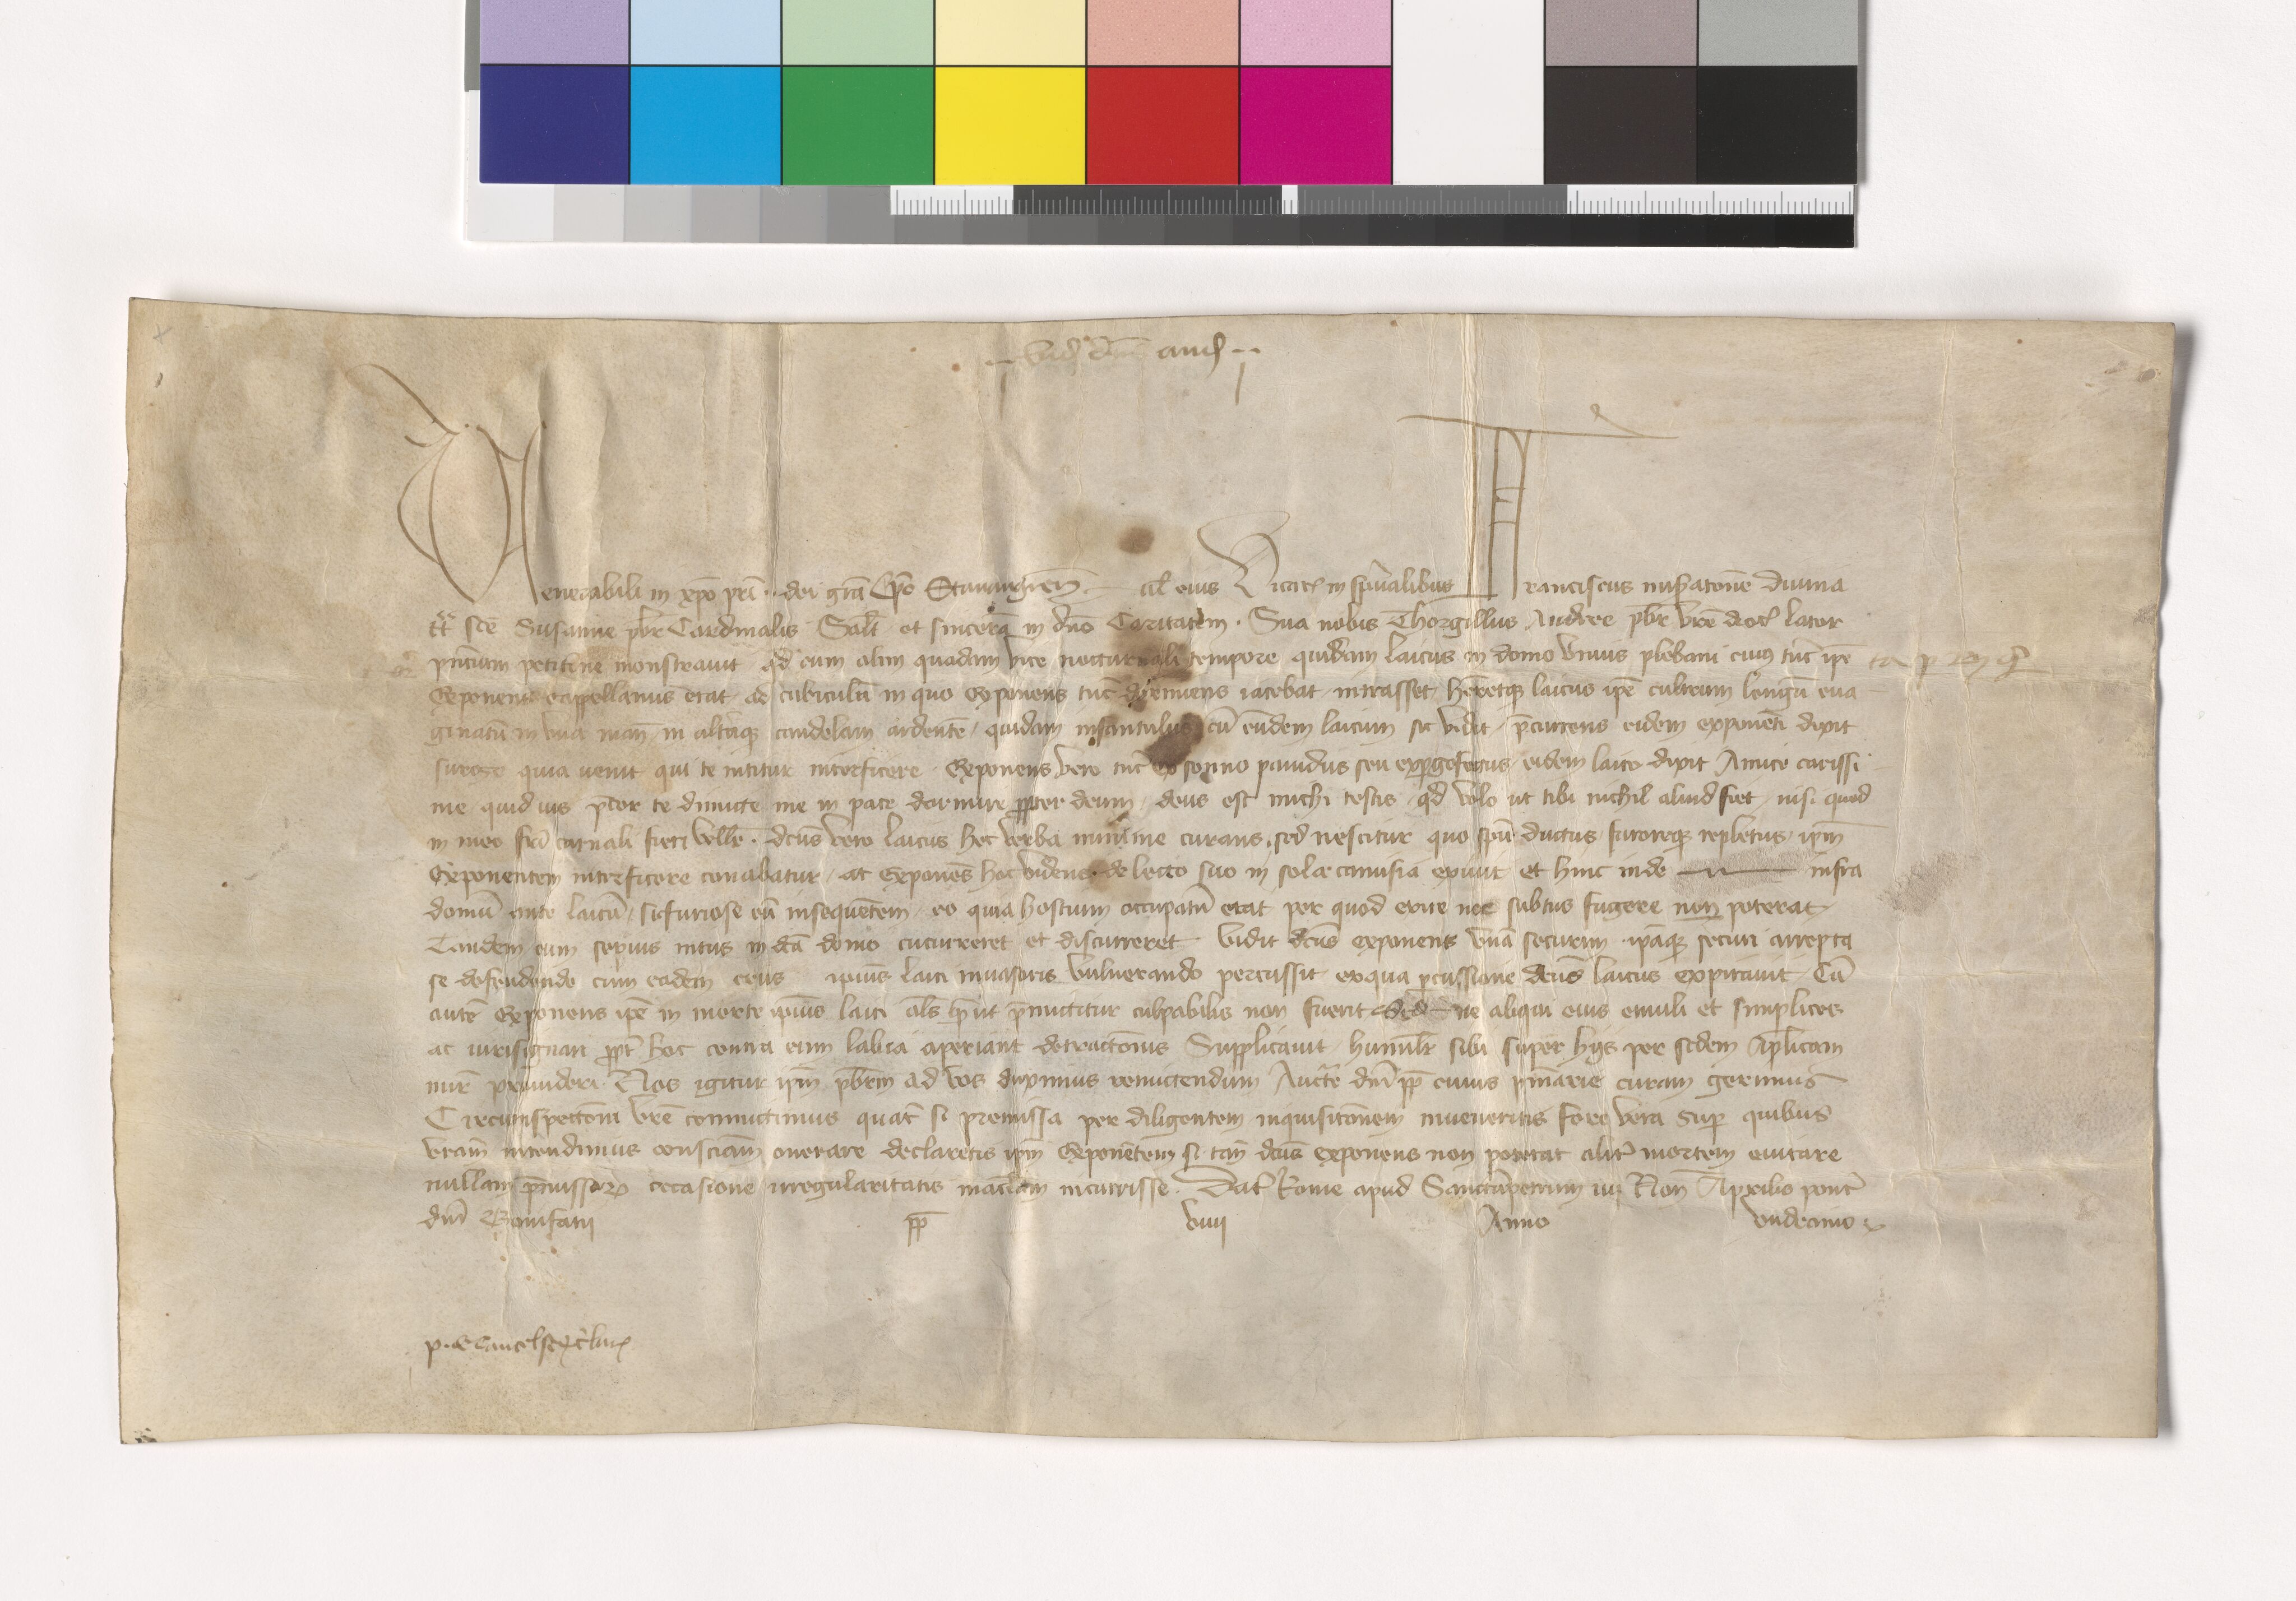 enerabili in xpo pri .. dei gra Epo Stauangren. uel eius Vicario in spiritualibus Franciscus miseratione diuina
tt scē Susanne pbr Cardinalis Salt et sincerā in dno Caritatem. Sua nobis Thorgillus Andree pbr vrē dioc lator
pntium petitione monstrauit qd cum olim quadam vice nocturnali tempore quidam laicus in domo vnius plebani cuius tūc ipe
Exponens cappellanus erat ad cubiculū in quo exponens tūc dormiens iacebat intrasset, hēretque laicus ipē cultrum longū eua
ginatū in vna manu in altāque candelam ardentē, quidam infantulus cū eūdem laicum sic vidit pcurrens eidem exponēti dixit
surge quia uenit qui te nititur interficere. Exponens vero tūc ex sopno pauidus seu expgefactus eidem laico dixit Amice carissi
me quid uis pcor te dimicte me in pace dormire ppter deum, deus est michi testis qd volo ut tibi nichil aliud fiet, nisi quod
in meo fri carnali fieri vellē. dcūs vero laicus hec verba minime curans, sed nescitur quo spū ductus furoreque repletus, ipm
Exponentem interficere conabatur, at exponēs hoc videns de lecto suo in sola camisia exiuit et hinc inde infra
domū ante laicū, sic furiose eū insequētem, eo quia hostium occupatū erat per quod exire nec subtus fugere non poterat
Tandem cum sepius intus in dcā domo cucurreret et discurreret vidit dcūs exponens vnā securim ipāque securi arrepta
se defendendo cum eadem ipīus laici inuasoris vulnerando percussit ex qua pcussione dcūs laicus expirauit Cū
autē Exponens ipē in morte ipīus laici als put pmictitur culpabilis non fuerit Sed ne aliqui eius emuli et simplices
ac iurisignari ppt hoc contra eum labia aperiant detractōnis Supplicauit humilr sibi super hijs per sedem Aplicam
mīr prouideri. Nos igitur ipm pbrm ad vos duximus remictendum Auctē dni pp cuius pmarie curam gerimus
Circumspectōni vrē comictimus quatr si premissa per diligentem inquisitōnem inueneritis fore vera sup quibus
vram intendimus consciam onerare declaretis ipm Exponētem si tam dcūs exponens non poterat alitr mortem euitare
nullam pmissoru occasione irregularitatis maclam incurrisse. Dat Rome apud Sanctupetrum iij Non Aprilis pont
dni Bonifatij pp viiij Anno vndecimo